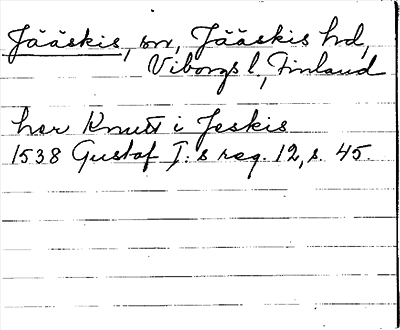 Jääskis, sn, Jääskis hd,
Viborgs l., Finland
her Knutt i Jeskis
1538 Gustaf I:s reg. 12, s. 45.